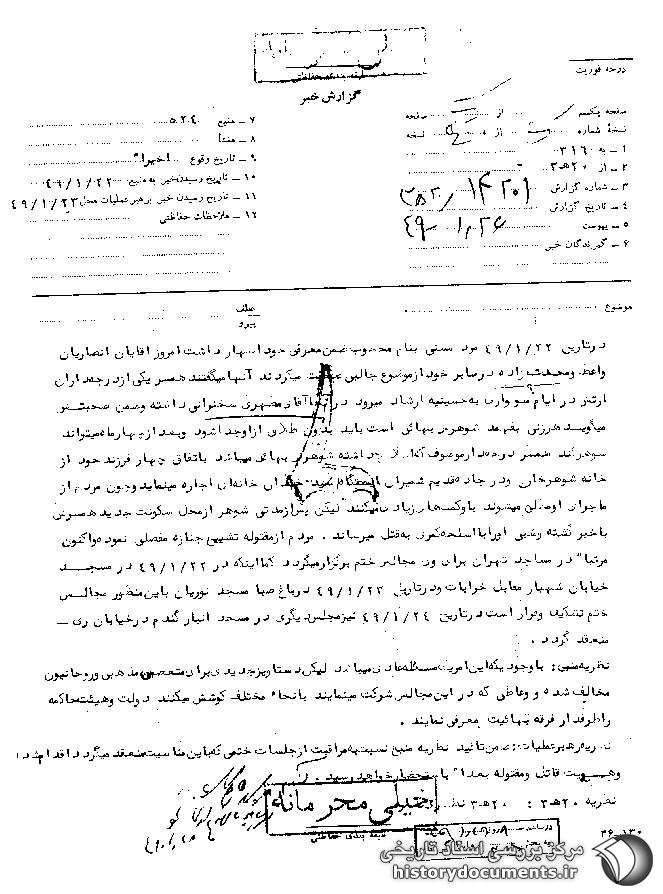 طبقه بندی حفاظتی
گزارش خبر
درجه فوریت
صفحه یکم از صفحه
نسخه شماره از نسخه
۱ ـ به ۳۱۶
۲ ـ از ۲۰ ه‍ ۳
۳ ـ شماره گزارش
۴ ـ تاریخ گزارش
۵ ـ پیوست
۶ ـ گیرندگان خبر
۷ ـ منبع ۵۲۴۰
۸ ـ منشأ
۹ ـ تاریخ وقوع اخیرا"
۱۰ ـ تاریخ رسیدن خبر به منبع ۴۹/۱/۲۲
۱۱ ـ تاریخ رسیدن خبر برهبر عملیات محل ۴۹/۱/۲۳
۱۲ ـ ملاحظات حفاظتی
موضوع
عطف
پیرو
درتاریخ ۴۹/۱/۲۲ مرد مسنی بنام محبوب ضمن معرفی خود اظهار داشت امروز اقایان انصاریان
واعظ ومحمدتقی زاده درسایر خود ازموضوع جالبی صحبت میکردند آنها میگفتند همسر یکی ازدرجه داران
ارتش در ایام سوگواری به حسینیه ارشاد میرود در آنجا آقای مطهری سخنرانی داشته وضمن صحبتش
میگوید هرزنی بفهمد شوهرش بهائی است باید بدون طلاق ازاوجدا شود وبعد ازچهارماه میتواند
شوهرکند همسر درجه دار موصوف که اطلاع داشته شوهرش بهائی میباشد باتفاق چهار فرزند خود از
خانه شوهر خارج ودر جاده قدیم شمیران خانه‌ای اجاره مینماید وچون مردم از
ماجرای اومطلع میشوند باوکمک‌ها زیاد میکنند لیکن پس‌ازمدتی شوهر ازمحل سکونت جدید همسرش
باخبر نقشه وی اورا با اسلحه کمری به قتل میرساند . مردم ازمقتوله تشییع جنازه مفصلی نموده واکنون
مرتبا" در مساجد تهران برای وی مجالس ختم برگزارمیگردد کما اینکه در ۴۹/۱/۲۲ در مسجد
خیابان شهباز مقابل خرابات ودرتاریخ ۴۹/۱/۲۳ درباغ صبا مسجد نوریان باین منظور مجالس
ختم تشکیل وقرار است درتاریخ ۴۹/۱/۲۴ نیزمجلس دیگری در مسجد انبار گندم درخیابان ری ـ
منعقد گردد .
نظریه منبع : باوجودیکه این امر یک مسئله عادی میباشد لیکن دستاویز جدیدی برای متعصبین مذهبی وروحانیون
مخالف شده و وعاظی که در این مجالس شرکت مینمایند بانحاء مختلف کوشش میکنند دولت وهیئت حاکمه
راطرفدار فرقه بهائیت معرفی نمایند .
نظریه رهبر عملیات : ضمن تائید نظریه منبع نسبت به مراقبت ازجلسات ختمی که باین مناسبت منعقد میگردد اقدام شده
وهویت قاتل ومقتوله بعدا" باستحضار خواهد رسید .
نظریه ۲۰ ه‍ ۳ :
خیلی محرمانه
طبقه بندی حفاظتی
۳۶ـ۱۳۰
مرکز بررسی اسناد تاریخی
historydocuments.ir